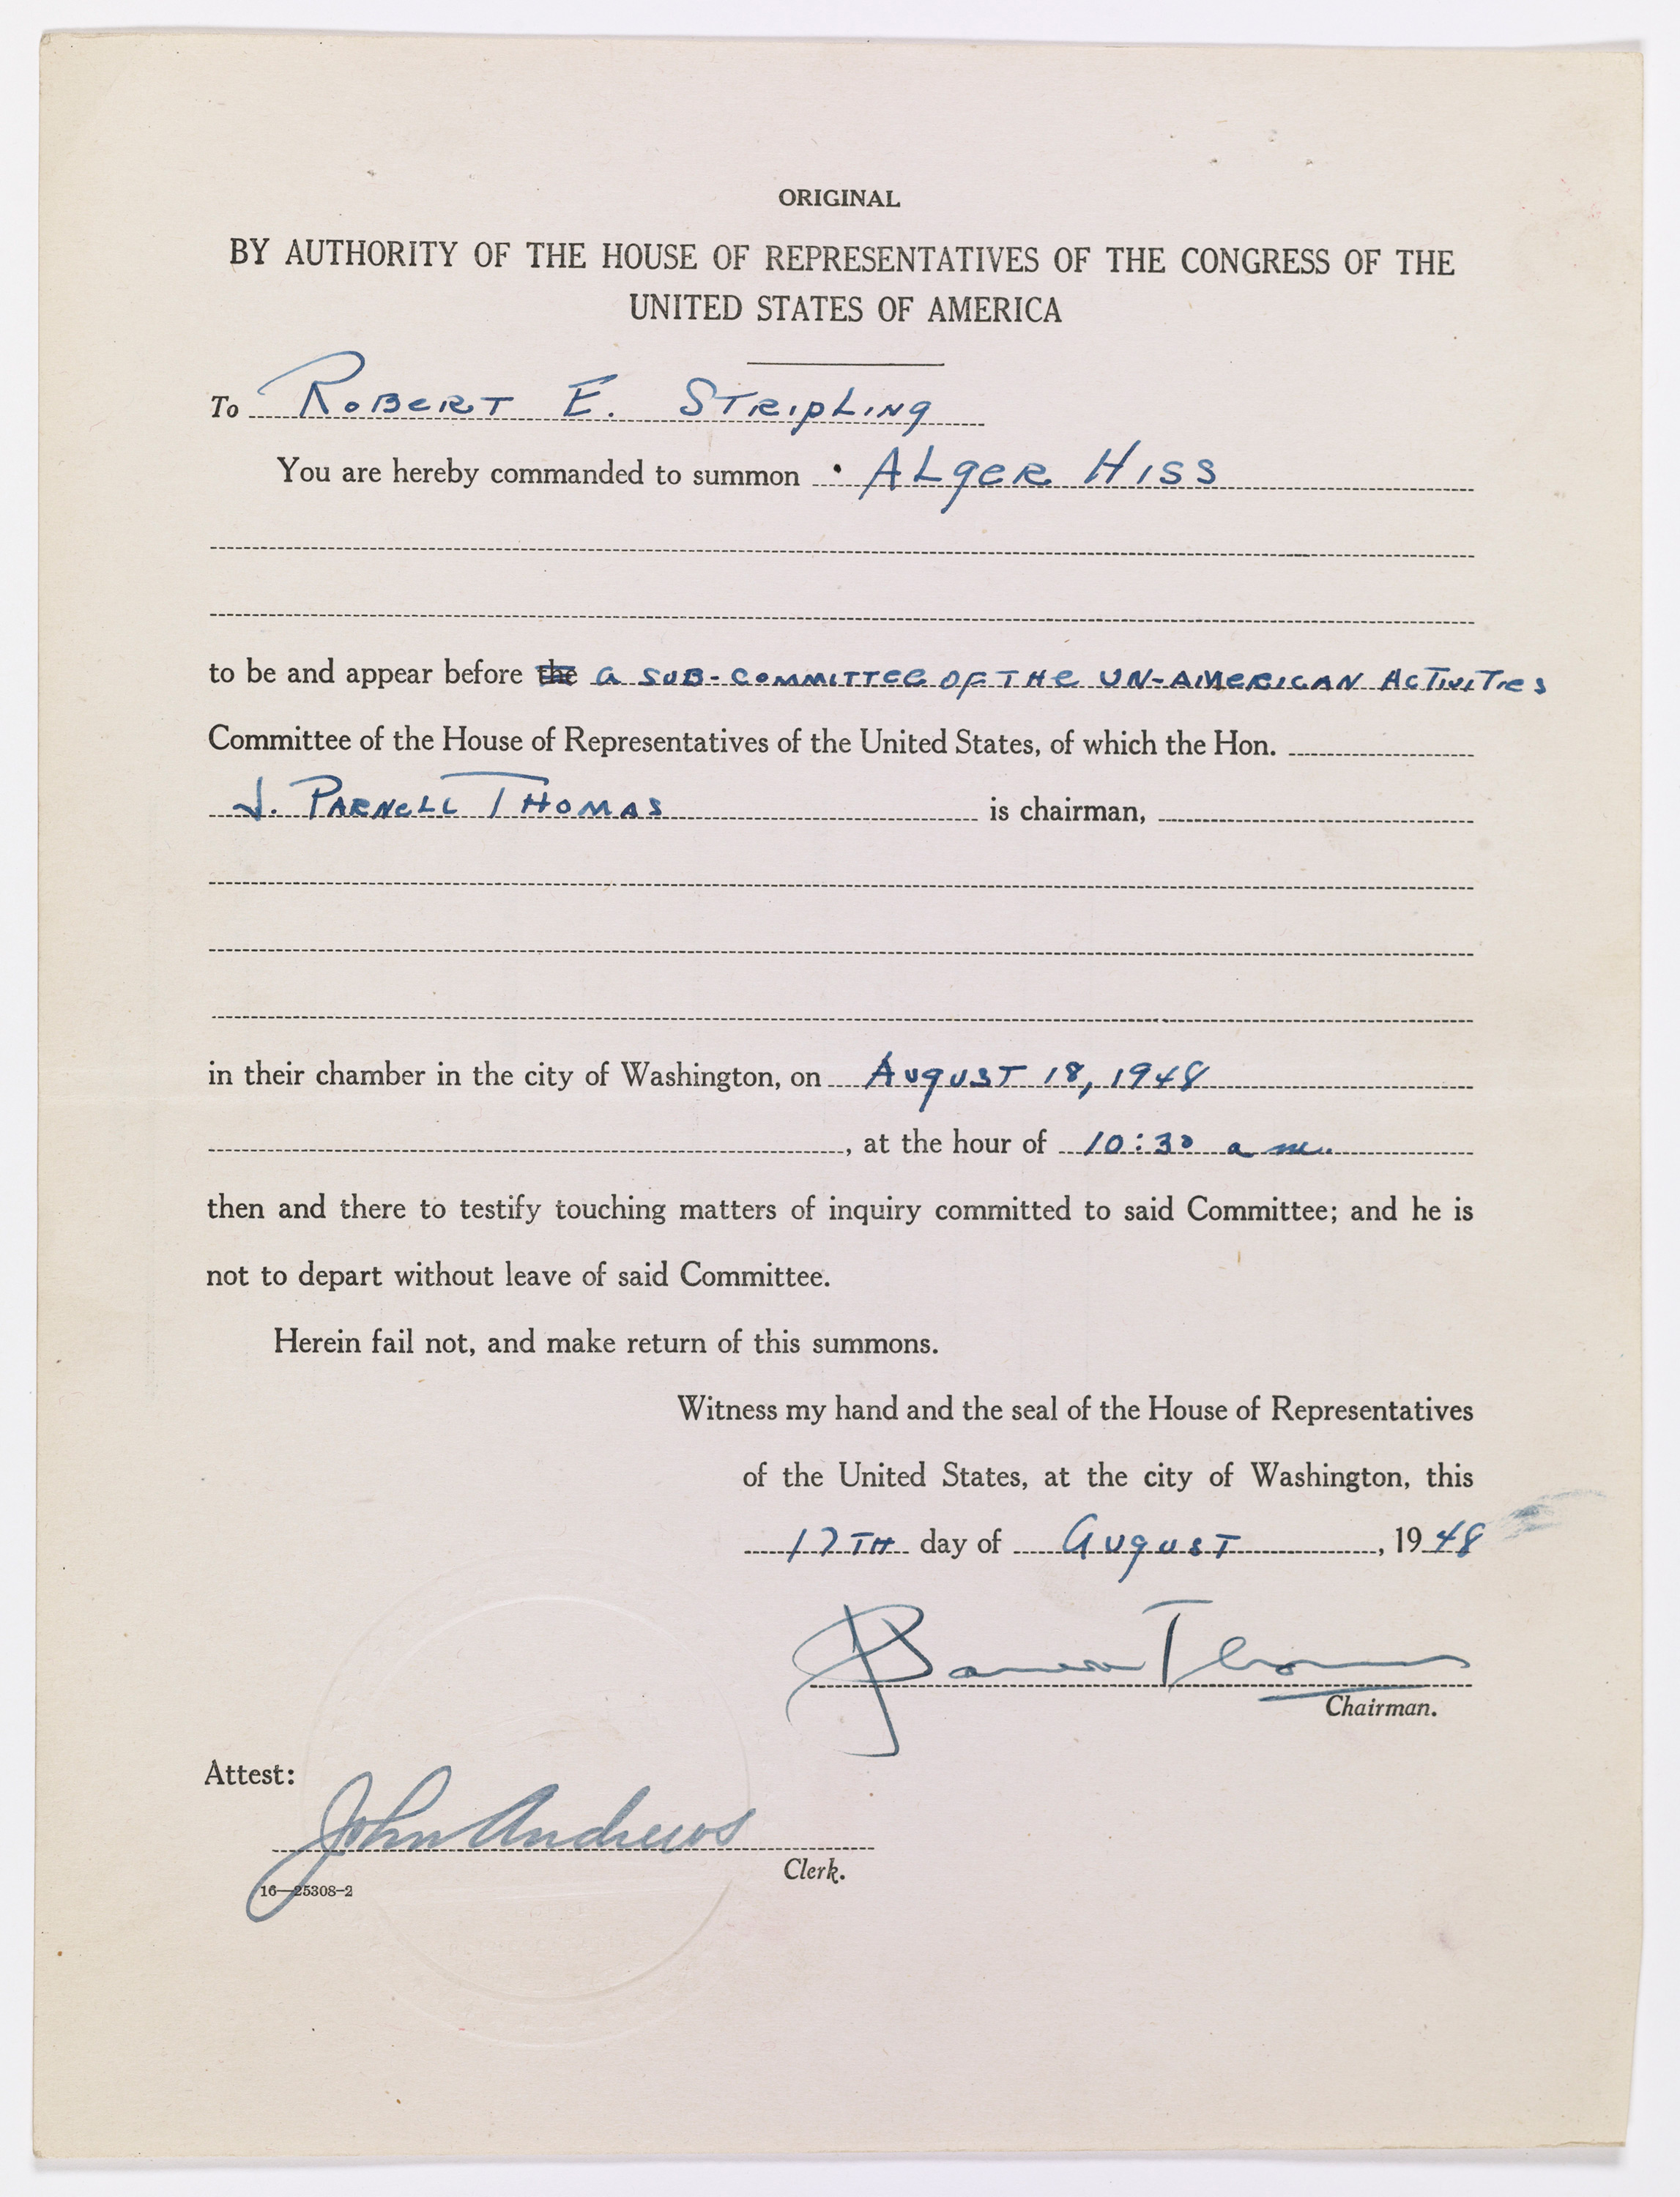 ORIGINAL
BY AUTHORITY OF THE HOUSE OF REPRESENTATIVES OF THE CONGRESS OF THE
UNITED STATES OF AMERICA
To Robert E. Stripling
You are hereby commanded to summon Alger Hiss
to be and appear before the a sub-committee of the Un-American Activities
Committee of the House of Representatives of the United States, of which the Hon.
J. Parnell Thomas is chairman,
in their chamber in the city of Washington, on August 18, 1948
, at the hour of 10:30 a m.
then and there to testify touching matters of inquiry committed to said Committee; and he is
not to depart without leave of said Committee.
Herein fail not, and make return of this summons.
Witness my hand and the seal of the House of Representatives
of the United States, at the city of Washington, this
17th day of August, 1948
J Parnell Thomas
Chairman.
Attest:
John Andrews
Clerk.
16—25308-2